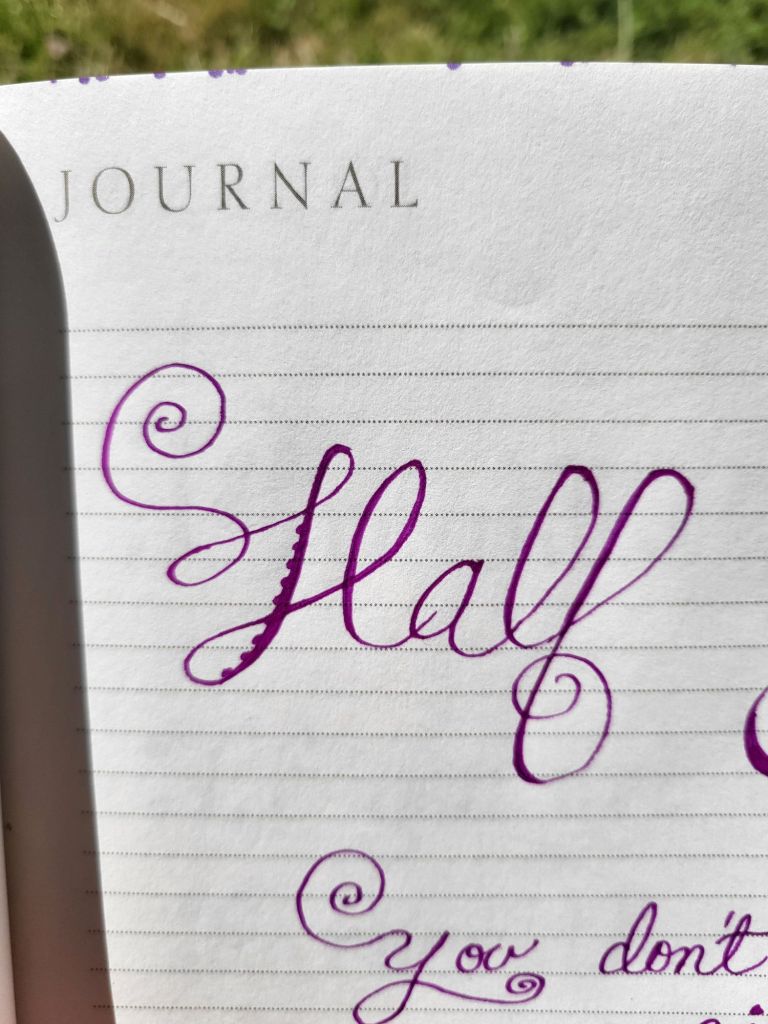 JOURNAL
Half
You don't